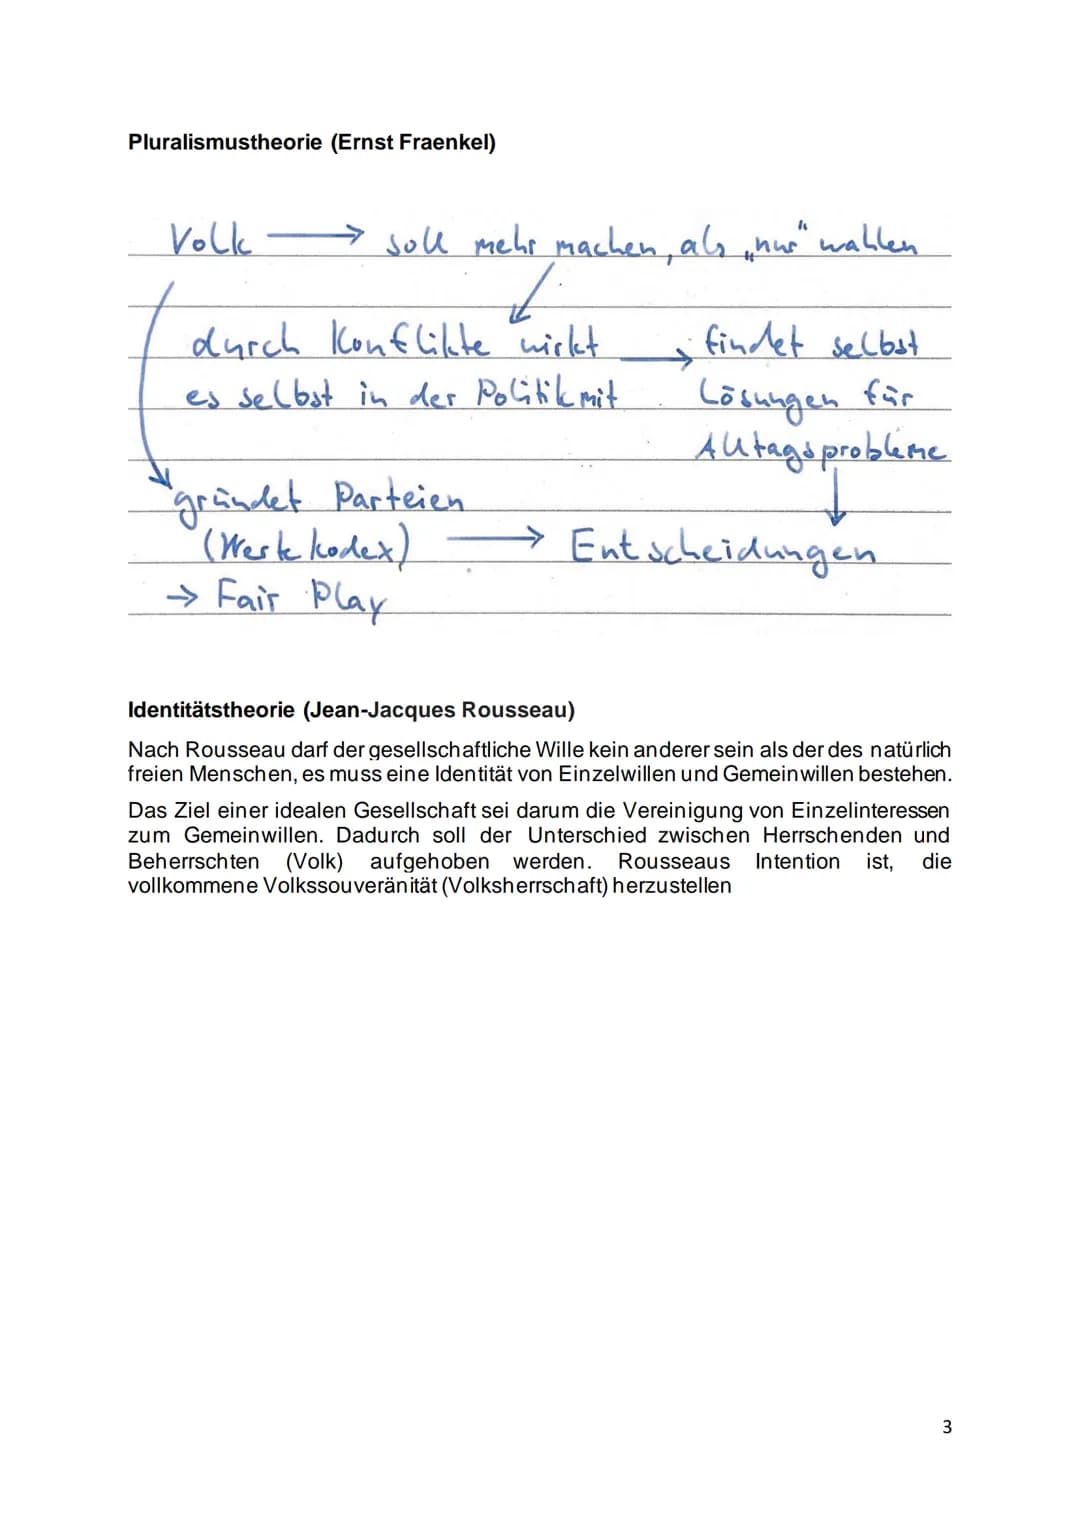 Pluralismustheorie (Ernst Fraenkel)
Volk → soll mehr machen, als „nur“ wählen
durch Konflikte wirkt → findet selbst
es selbst in der Politik mit Lösungen für
Alltagsprobleme
gründet Parteien
(Wertkodex) → Entscheidungen
→ Fair Play
Identitätstheorie (Jean-Jacques Rousseau)
Nach Rousseau darf der gesellschaftliche Wille kein anderer sein als der des natürlich
freien Menschen, es muss eine Identität von Einzelwillen und Gemeinwillen bestehen.
Das Ziel einer idealen Gesellschaft sei darum die Vereinigung von Einzelinteressen
zum Gemeinwillen. Dadurch soll der Unterschied zwischen Herrschenden und
Beherrschten (Volk) aufgehoben werden. Rousseaus Intention ist, die
vollkommene Volkssouveränität (Volksherrschaft) herzustellen
3